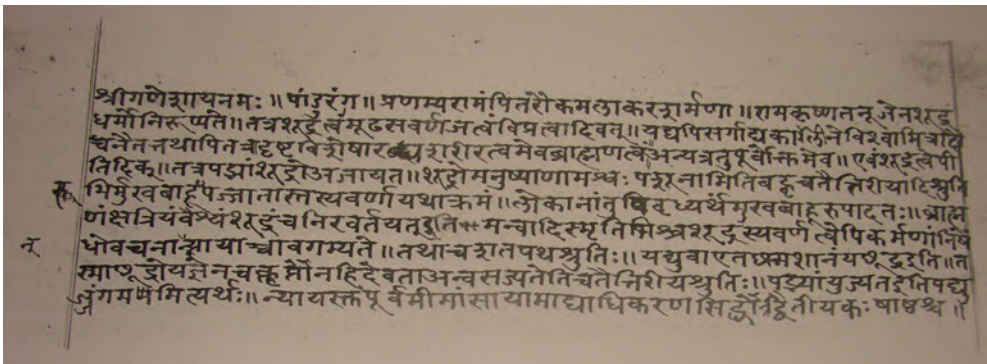 श्रीगणेशायनमः ॥ पांडुरंग ॥ प्रणम्यरामंपितरौकमलाकरशर्मणा ॥ रामकृष्णतनूजेनशूद्र
धर्मोनिरूप्यते ॥ तत्रशूद्रत्वंमूढसवर्णजत्वंविप्रत्वादिवत् ॥ यद्यपिसर्गाद्यकालीनेविश्वामित्रादौ
चनैतत्तथापितत्रादृष्टविशेषारब्धशरीरत्वमेवब्राह्मणत्वंअन्यत्रतुपूर्वोक्तमेव ॥ एवंशूद्रत्वेपी
तिदिक् ॥ तत्रपद्भ्यांशूद्रोअजायत ॥ शूद्रोमनुष्याणामश्वः पशूनामितिबह्वृचतैत्तिरीयादिश्रुति
भिर्मुखबाहूपज्जातास्तस्यवर्णायथाक्रमं ॥ लोकानांतुविवृध्यर्थंमुखबाहूरुपादतः ॥ ब्राह्म
णंक्षत्रियंवैश्यंशूद्रंचनिरवर्तयत्इतिमन्वादिस्मृतिभिश्चशूद्रस्यवर्णत्वेपिकर्मणांनिषे
धोवचनान्न्यायाच्चावगम्यते ॥ तथाचशतपथश्रुतिः ॥ यद्युवाएतछ्मशानंयछूद्रइति ॥ त
स्माछूद्रोयज्ञेनचकॢप्तोनहिदेवताअन्वसृज्यतेतिचतैत्तिरीयश्रुतिः ॥ पद्भ्यांयुज्यतइतिपद्यु
जंगममित्यर्थः ॥ न्यायस्तुपूर्वमीमांसायामाद्याधिकरणसिद्धोद्वितीयकः षाष्ठश्च ॥